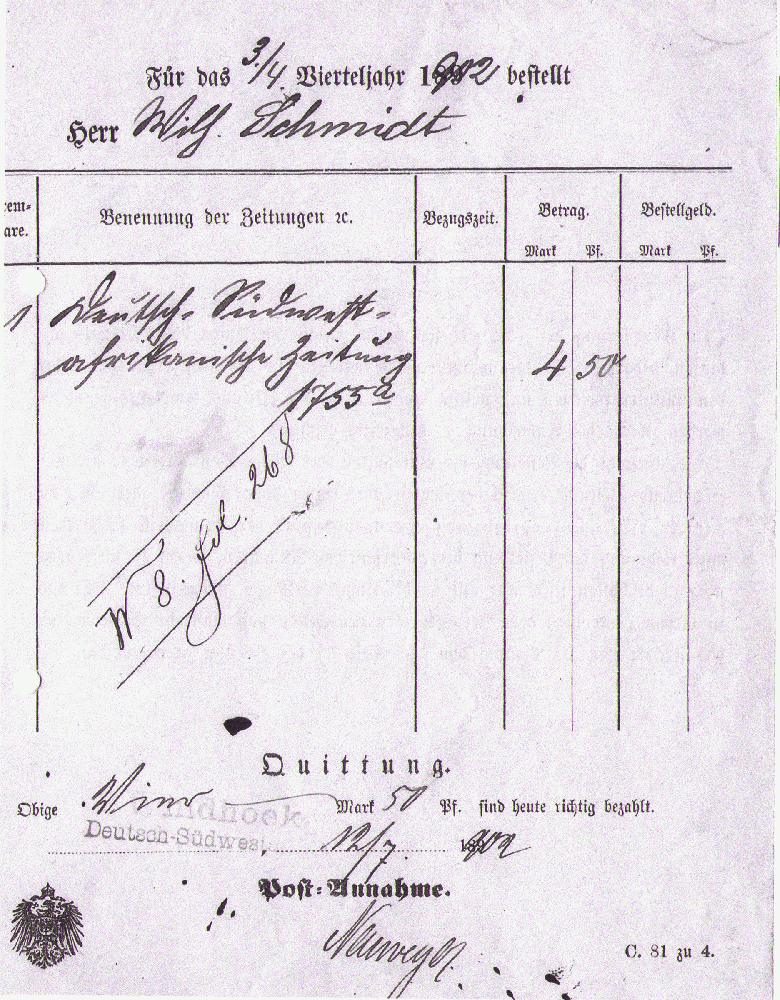 Für das 3./4. Vierteljahr 1902 bestellt
Herr Wilh. Schmidt
Benennung der Zeitungen ꝛc.
Bezugszeit.
Betrag.
Bestellgeld.
Mark Pf. Mark Pf.
1 Deutsch-Südwest-
afrikanische Zeitung 4 50
1755a
W 8. fol. 268
Quittung.
Obige Vier Mark 50 Pf. sind heute richtig bezahlt.
Windhoek
Deutsch-Südwest
12/7. 1902
Post-Annahme.
C. 81 zu 4.